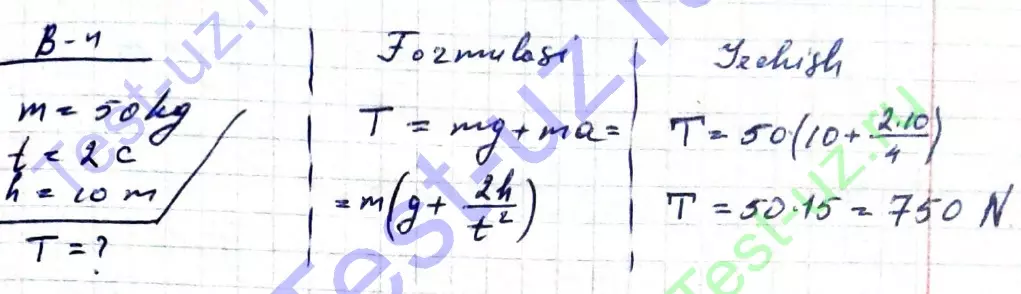 B-4
m = 50 kg
t = 2 c
h = 10 m
T = ?
Formulasi
T = mg + ma =
= m(g + 2h/t²)
Yechish
T = 50·(10 + 2·10/4)
T = 50·15 = 750 N
Test-uz.ru
Test-uz.ru